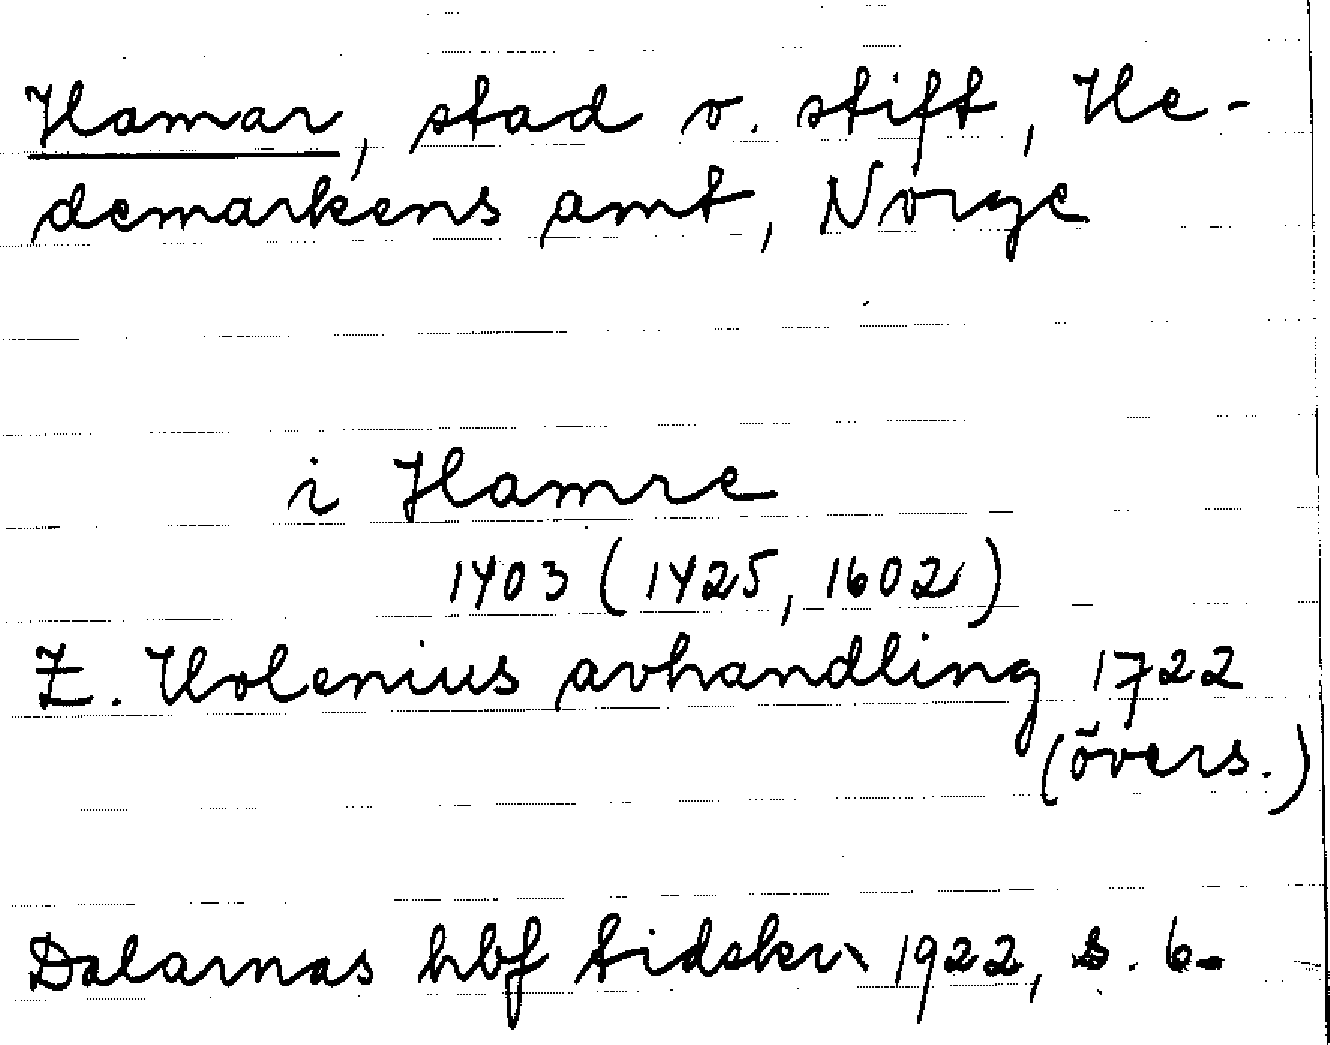 Hamar, stad o. stift, He-
demarkens amt, Norge
i Hamre
1403 (1425, 1602)
Z. Holenius avhandling 1722
(övers.)
Dalarnas hbf tidskr. 1922, s. 6.